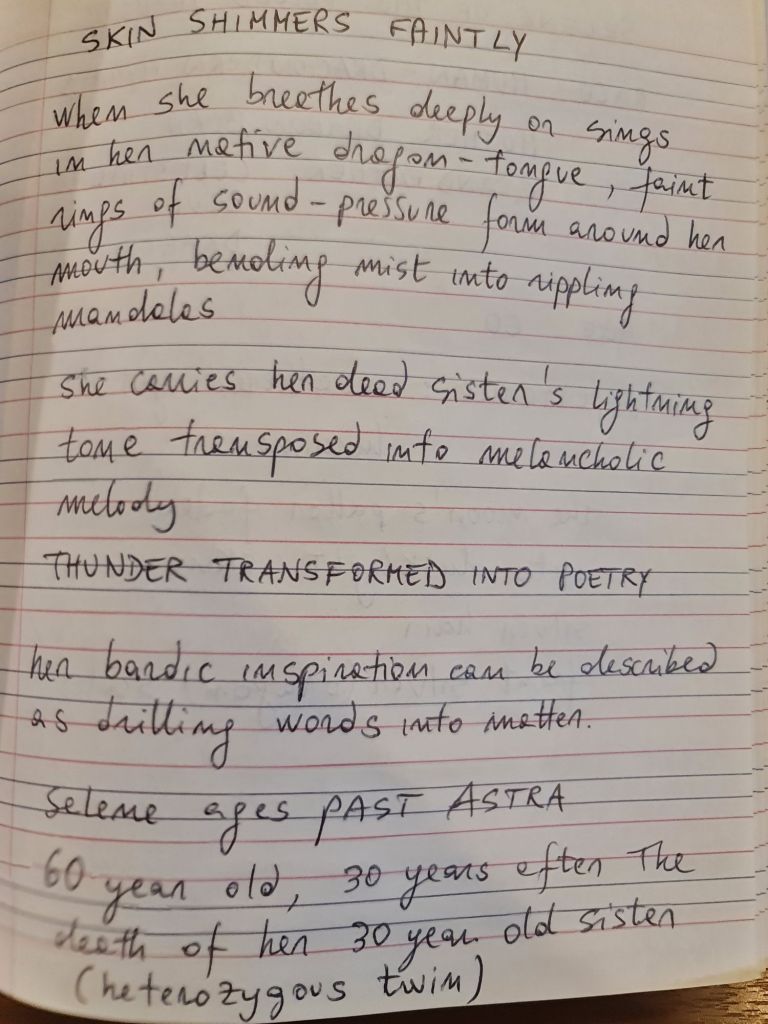 SKIN SHIMMERS FAINTLY
when she breathes deeply or sings
in her native dragon-tongue, faint
rings of sound-pressure form around her
mouth, bending mist into rippling
mandalas
she carries her dead sister's lightning
tone transposed into melancholic
melody
THUNDER TRANSFORMED INTO POETRY
her bardic inspiration can be described
as drilling words into matter.
Selene ages PAST ASTRA
60 year old, 30 years after The
death of her 30 year old sister
(heterozygous twin)